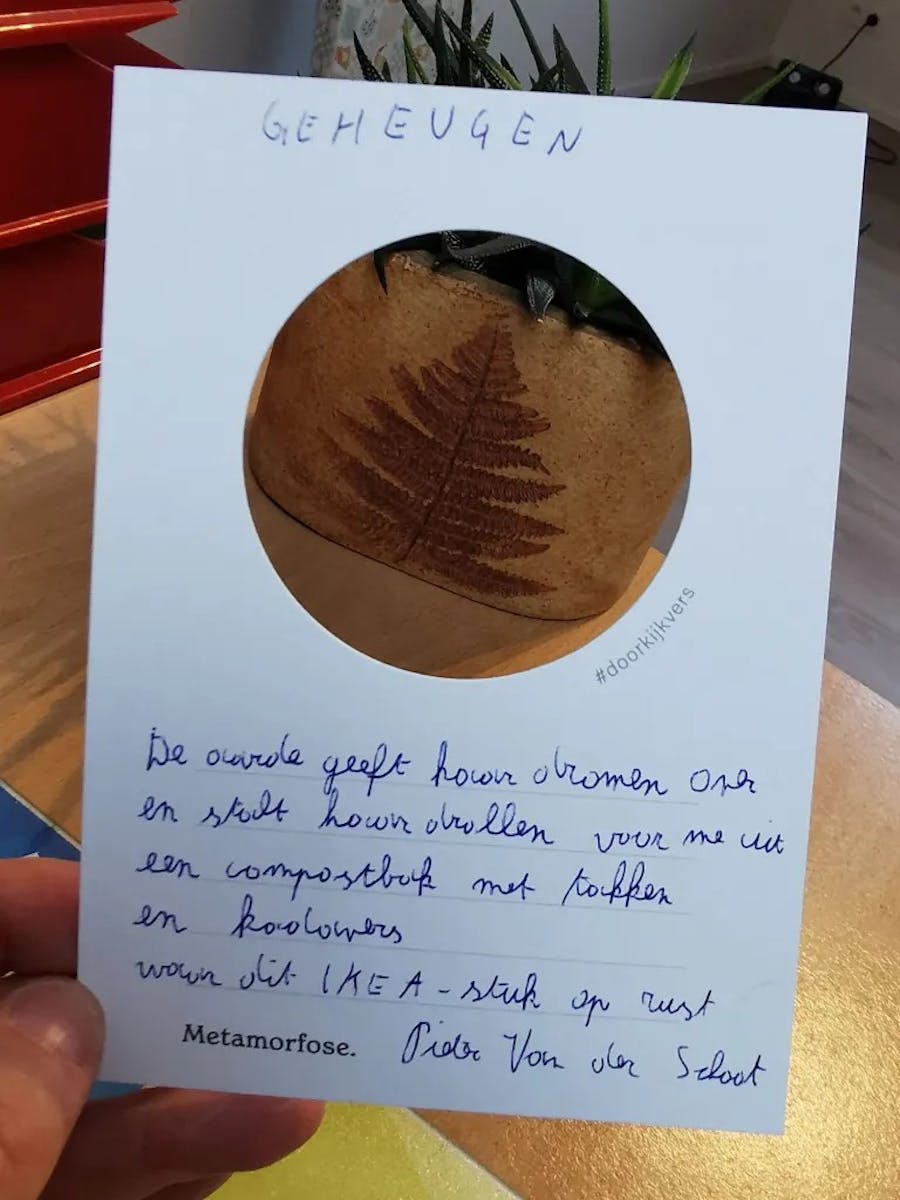 GEHEUGEN
#doorkijkvers
De aarde geeft haar dromen over
en stalt haar drollen voor me uit
een compostbak met takken
en kadavers
waar dit IKEA-stuk op rust
Metamorfose. Van der Schoot